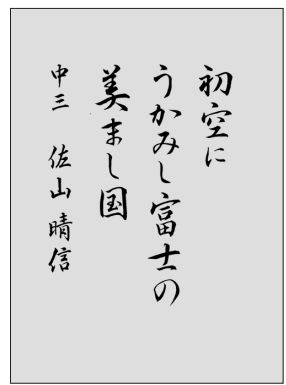 初空に
うかみし富士の
美まし国
中三 佐山晴信